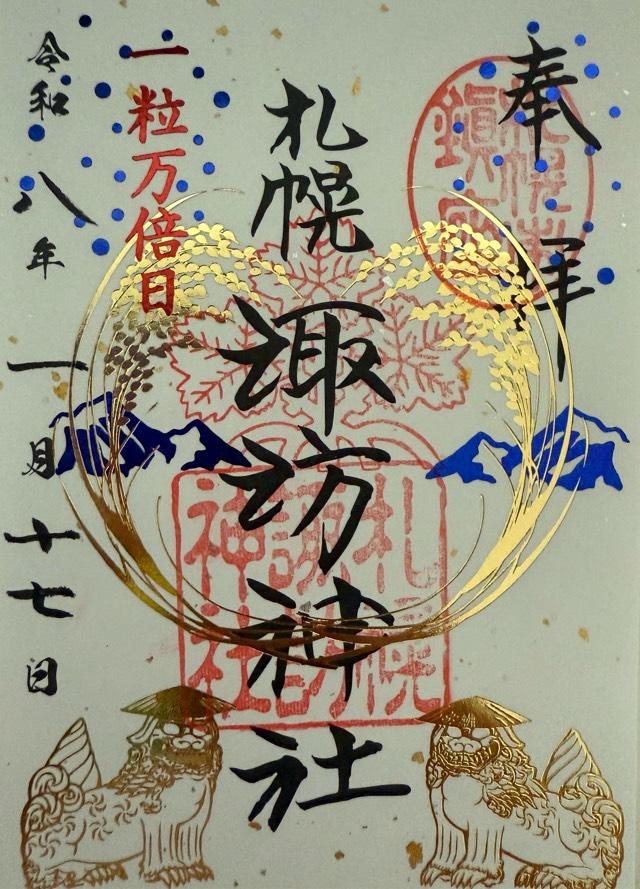 奉拝
札幌諏訪神社
一粒万倍日
令和八年一月十七日
札幌市
鎮座
札幌
諏訪
神社